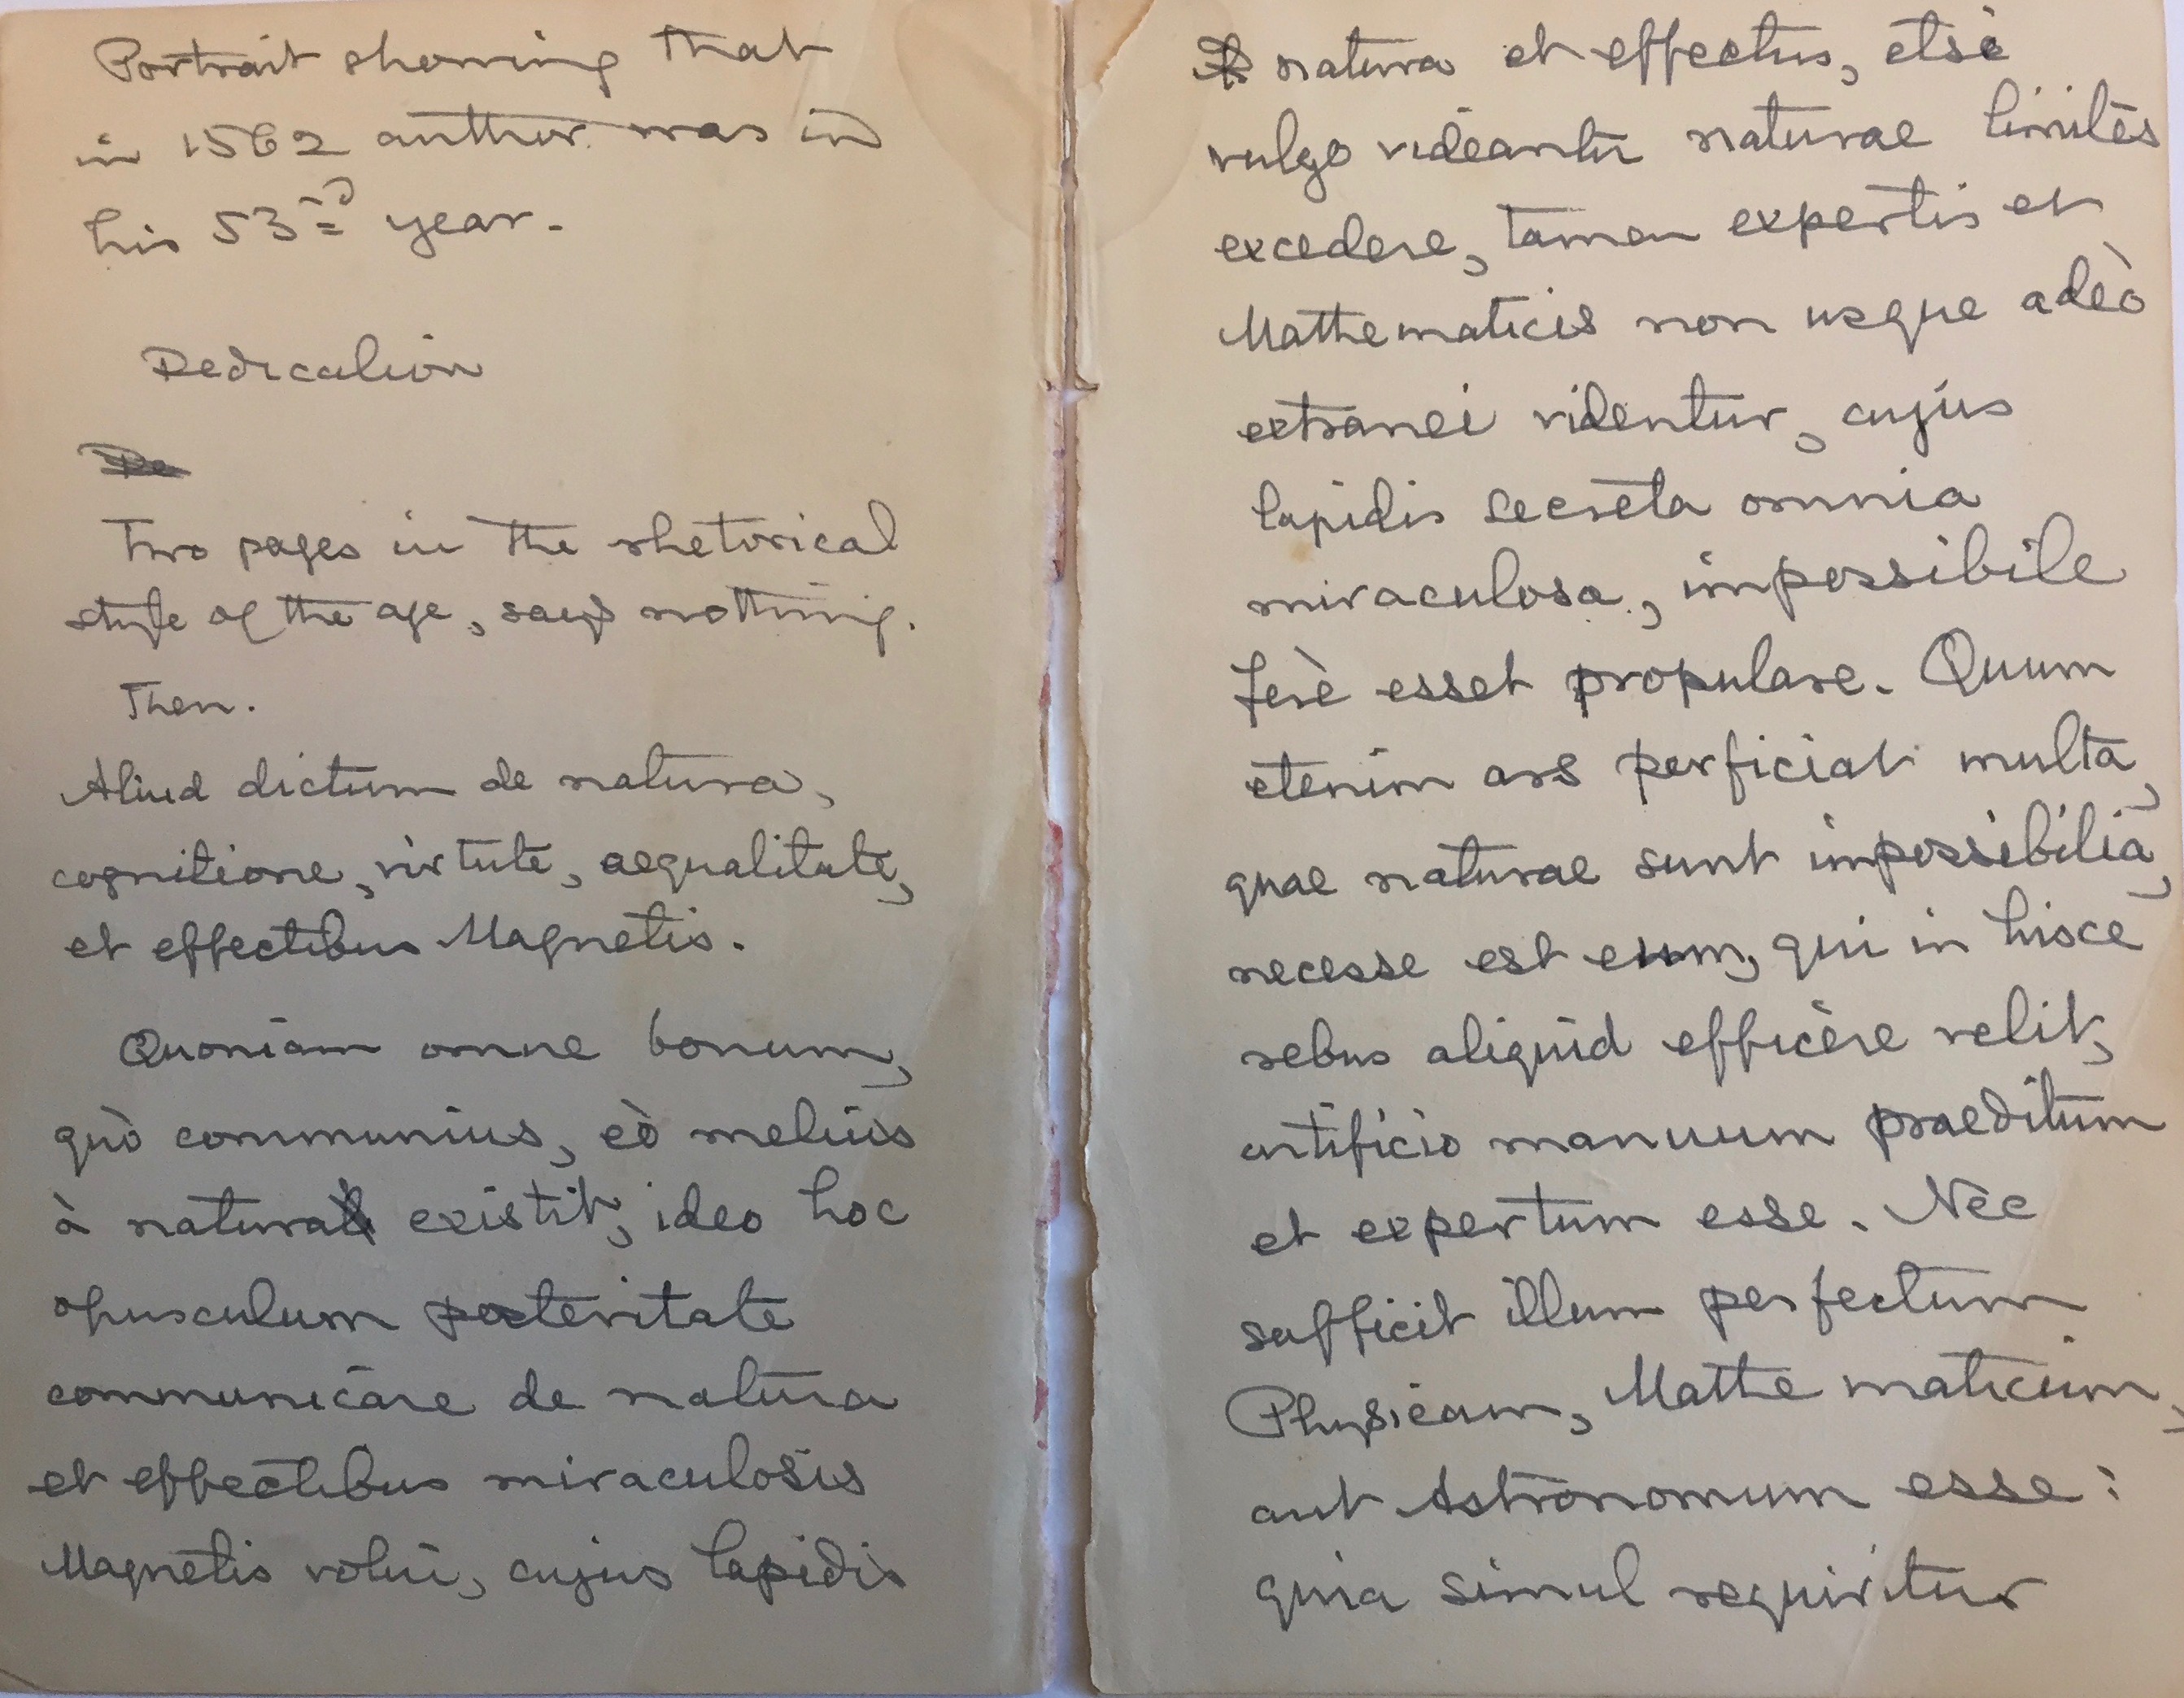 Portrait showing that
in 1562 author was in
his 53rd year.
Dedication
Two pages in the rhetorical
style of the age, says nothing.
Then.
Aliud dictum de natura,
cognitione, virtute, aequalitate,
et effectibus Magnetis.
Quoniam omne bonum,
quò communius, eò melius
à natura existit, ideo hoc
opusculum posteritate
communicare de natura
et effectibus miraculosis
Magnetis volui, cujus lapidis
natura et effectus, etsi
vulgo videantur naturae limites
excedere, tamen expertis et
Mathematicis non usque adeò
extranei videntur, cujus
lapidis secreta omnia
miraculosa, impossibile
ferè esset propulare. Quum
etenim ars perficiat multa,
quae naturae sunt impossibilia,
necesse est eum, qui in hisce
rebus aliquid efficere velit,
artificio manuum praeditum
et expertum esse. Nec
sufficit illum perfectum
Physicum, Mathematicum,
aut Astronomum esse:
quia simul requiritur